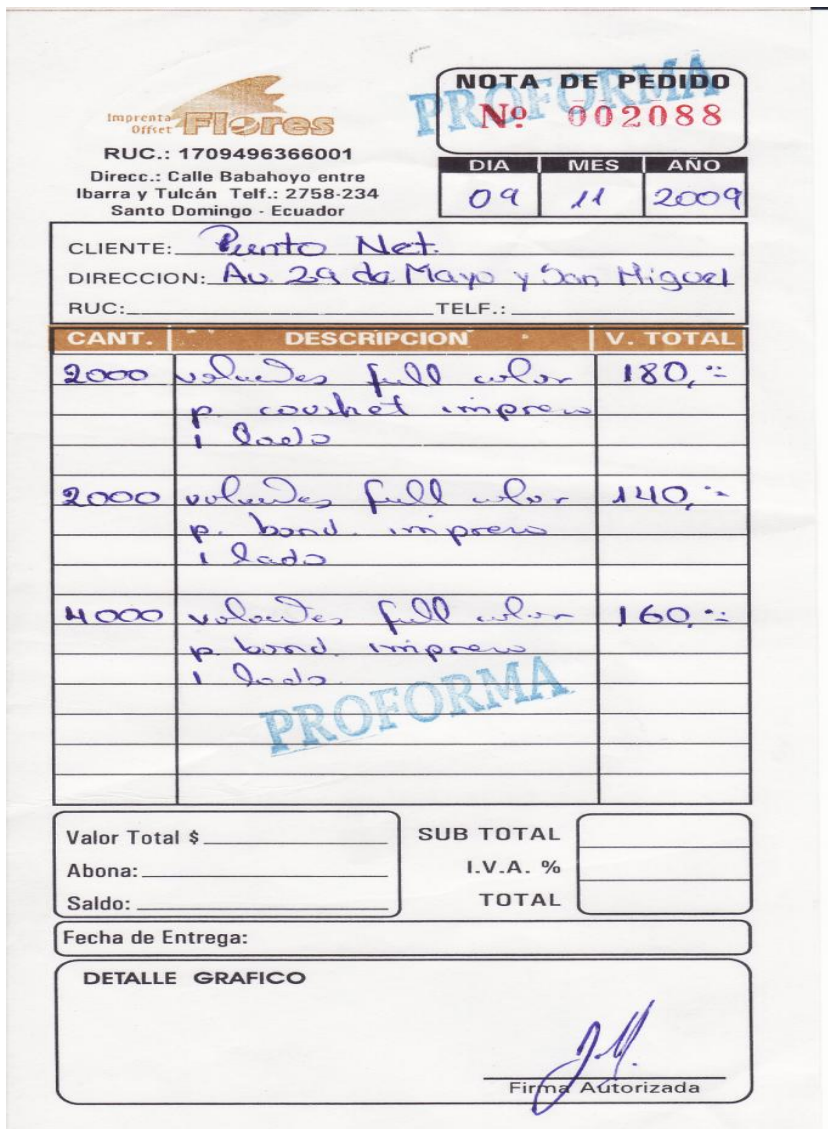 Imprenta
Offset Flores
RUC.: 1709496366001
Direcc.: Calle Babahoyo entre
Ibarra y Tulcán Telf.: 2758-234
Santo Domingo - Ecuador
NOTA DE PEDIDO
PROFORMA
Nº 002088
DIA MES AÑO
09 11 2009
CLIENTE: Punto Net.
DIRECCION: Av. 29 de Mayo y San Miguel
RUC: TELF.:
CANT. DESCRIPCION V. TOTAL
2000 volantes full color 180,=
p. coushet impreso
1 lado
2000 volantes full color 140,=
p. bond. impreso
1 lado
4000 volantes full color 160,=
p. bond. impreso
1 lado
PROFORMA
Valor Total $
Abona:
Saldo:
SUB TOTAL
I.V.A. %
TOTAL
Fecha de Entrega:
DETALLE GRAFICO
Firma Autorizada